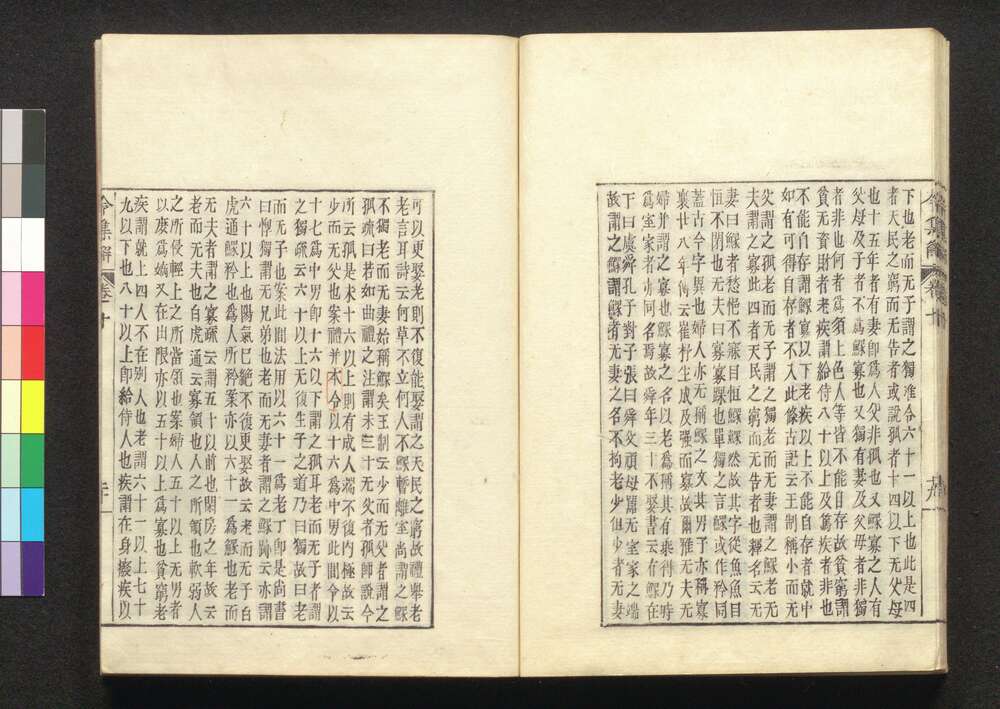 令集解 卷十
下也老而无子謂之獨准令六十一以上也此是四
者天民之窮而无告者或説孤者十四以下无父母
也十五年者有妻即爲人父非孤也又鰥寡之人有
父母及子者不爲鰥寡也又獨有妻及父母者非獨
者非也何者爲須上色人等皆不能自存故貧窮謂
貧无資財者老疾謂給侍八十以上及篤疾者非也
不能自存謂鰥寡以下老疾以上不能自存者就中
如有可得自存者不入此條古記云王制稱小而无
父謂之孤老而无子謂之獨老而无妻謂之鰥老无
夫謂之寡此四者天民之窮而无告者也釋名云无
妻曰鰥者愁悒不寐目恒鰥鰥然故其字從魚魚目
恒不閉也无夫曰寡寡踝也單獨之言鰥或作矜同
蓋古今字異也婦人亦无稱鰥之文其男子亦稱寡
襄廿八年傳云崔杼生成及彊而寡故爾雅无夫无
婦并謂之寡也鰥寡之名以老爲稱其有乘得乃時
爲室家者亦同名焉故舜年三十不娶書云有鰥在
下曰虞舜孔子對子張曰舜父頑母嚚无室家之端
故謂之鰥謂鰥者无妻之名不拘老少但少者无妻
可以更娶老則不復能娶謂之天民之窮故禮舉老
老言耳詩云何草不玄何人不鰥暫離室尚謂之鰥
不獨老而无妻始稱鰥矣王制云少而无父者謂之
孤疏曰若如曲禮之注謂未三十无父者孤師説今
所云孤是未十六以上則有成人滿不復内極故云
少而无父也案禮并本令以十六爲中男此間令以
十七爲中男即十六以下謂之孤耳老而无子者謂
之獨疏云六十以上以无復生子之道乃曰獨故曰老
而无子也案此間法用以六十一爲老丁即是尚書
曰惸獨謂无兄弟也老而无妻者謂之鰥疏云亦謂
六十以上也陽氣已絶不復更娶故云老而无子白
虎通鰥矜也爲人所矜案亦以六十一爲鰥也老而
无夫者謂之寡疏云謂五十以前也閉房之年故云
老而无夫也白虎通云寡領也人之所領也軟弱人
之所侵輕上之所當領也案婦人五十以上无男者
以廢爲嫡又在出限亦以五十以上爲寡也貧窮老
疾謂就上四人不在別人也老謂六十一以上七十
九以下也八十以上即給侍人也疾謂在身癈疾以
令集解 卷十